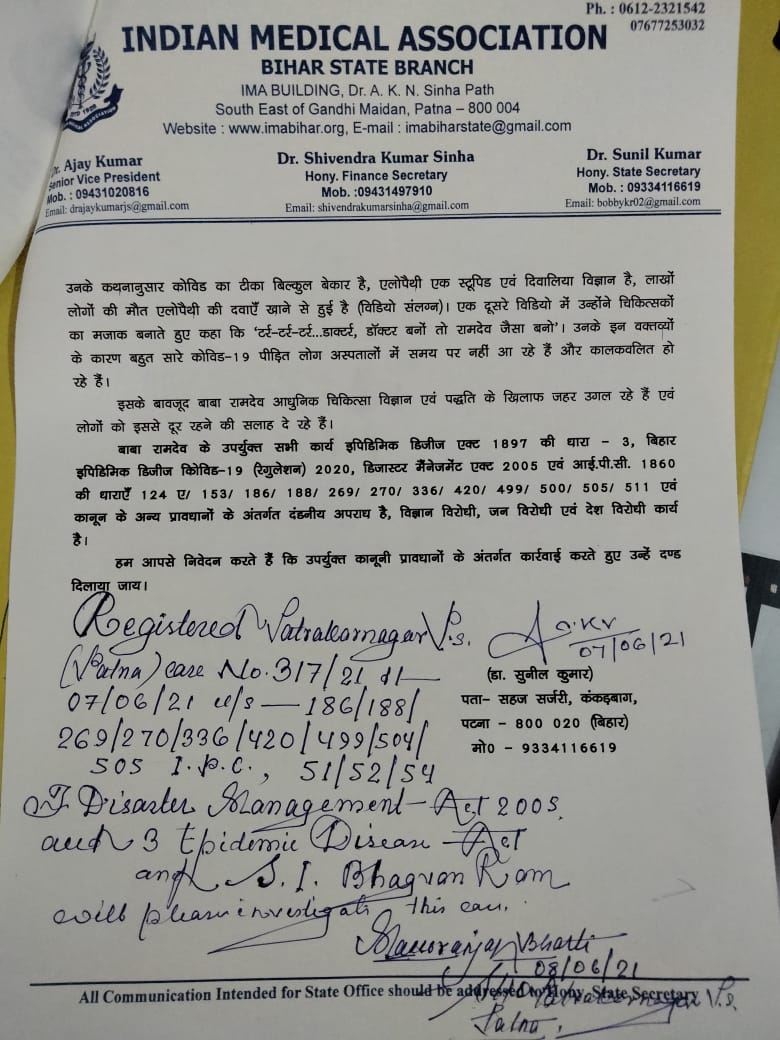 Ph. : 0612-2321542
07677253032
INDIAN MEDICAL ASSOCIATION
BIHAR STATE BRANCH
IMA BUILDING, Dr. A. K. N. Sinha Path
South East of Gandhi Maidan, Patna – 800 004
Website : www.imabihar.org, E-mail : imabiharstate@gmail.com
Dr. Ajay Kumar
Senior Vice President
Mob. : 09431020816
Email: drajaykumarjs@gmail.com
Dr. Shivendra Kumar Sinha
Hony. Finance Secretary
Mob. :09431497910
Email: shivendrakumarsinha@gmail.com
Dr. Sunil Kumar
Hony. State Secretary
Mob. : 09334116619
Email: bobbykr02@gmail.com
उनके कथनानुसार कोविड का टीका बिल्कुल बेकार है, एलोपैथी एक स्टूपिड एवं दिवालिया विज्ञान है, लाखों
लोगों की मौत एलोपैथी की दवाएँ खाने से हुई है (विडियो संलग्न)। एक दूसरे विडियो में उन्होंने चिकित्सकों
का मजाक बनाते हुए कहा कि 'टर्र-टर्र-टर्र...डाक्टर, डॉक्टर बनों तो रामदेव जैसा बनो'। उनके इन वक्तव्यों
के कारण बहुत सारे कोविड-19 पीड़ित लोग अस्पतालों में समय पर नहीं आ रहे हैं और कालकवलित हो
रहे हैं।
इसके बावजूद बाबा रामदेव आधुनिक चिकित्सा विज्ञान एवं पद्धति के खिलाफ जहर उगल रहे हैं एवं
लोगों को इससे दूर रहने की सलाह दे रहे हैं।
बाबा रामदेव के उपर्युक्त सभी कार्य इपिडिमिक डिजीज एक्ट 1897 की धारा - 3, बिहार
इपिडिमिक डिजीज किोविड-19 (रेगुलेशन) 2020, डिजास्टर मैंनेजमेंट एक्ट 2005 एवं आई.पी.सी. 1860
की धाराएँ 124 ए/ 153/ 186/ 188/ 269/ 270/ 336/ 420/ 499/ 500/ 505/ 511 एवं
कानून के अन्य प्रावधानों के अंतर्गत दंडनीय अपराध है, विज्ञान विरोधी, जन विरोधी एवं देश विरोधी कार्य
है।
हम आपसे निवेदन करते हैं कि उपर्युक्त कानूनी प्रावधानों के अंतर्गत कार्रवाई करते हुए उन्हें दण्ड
दिलाया जाय।
Registered Patrakarnagar P.s.
(Patna) case No. 317/21 dt
07/06/21 u/s — 186/188/
269/270/336/420/499/504/
505 I.P.C., 51/52/54
of Disaster Management Act 2005.
and 3 Epidemic Disease Act
and S.I. Bhagvan Ram
will please investigate this case.
07/06/21
(डा. सुनील कुमार)
पता- सहज सर्जरी, कंकड़बाग,
पटना - 800 020 (बिहार)
मो0 - 9334116619
Manoranjan Bharti
08/06/21
Patrakarnagar P.s.
Patna.
All Communication Intended for State Office should be addressed to Hony. State Secretary